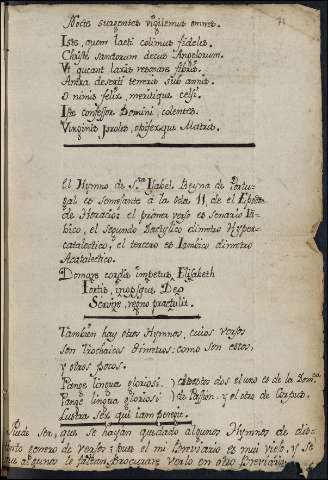 71
Nocte surgentes vigilemus omnes.
Iste, quem laeti colimus fideles.
Christe sanctorum decus Angelorum.
Vt queant laxis resonare fibris.
Antra deserti teneris sub annis.
O nimis felix, meritique celsi.
Iste confessor Domini, colentes.
Virginis proles, opifexque Matris.
El Hymno de S.ta Isabel Reyna de Portu-
gal es semejante â la Oda 11, de el Epodo
de Horacio: el primer verso es senario Iâ-
bico, el segundo Dactylico dimetro Hyper-
catalectico, el tercero es Iambico dimetro
Acatalectico.
Domare cordis impetus Elisabeth
Fortis, inopsque Deo
Servire, regno praetulit.
Tambien hay otros Hymnos, cuios versos
son Trochaicos dimetros; como son estos,
y otros pocos.
Pange lingua gloriosi de estos dos el uno es de la Dom.ca
Pange lingua gloriosi de Passion: y el otro de Corpus.
Lustra sex qui iam peregit.
Pude ser, que se hayan quedado algunos Hymnos de dis-
tinto genero de versos; pues el mi Breviario es mui viejo, y se
que algunos le faltan, procurare verlo en otro Breviario